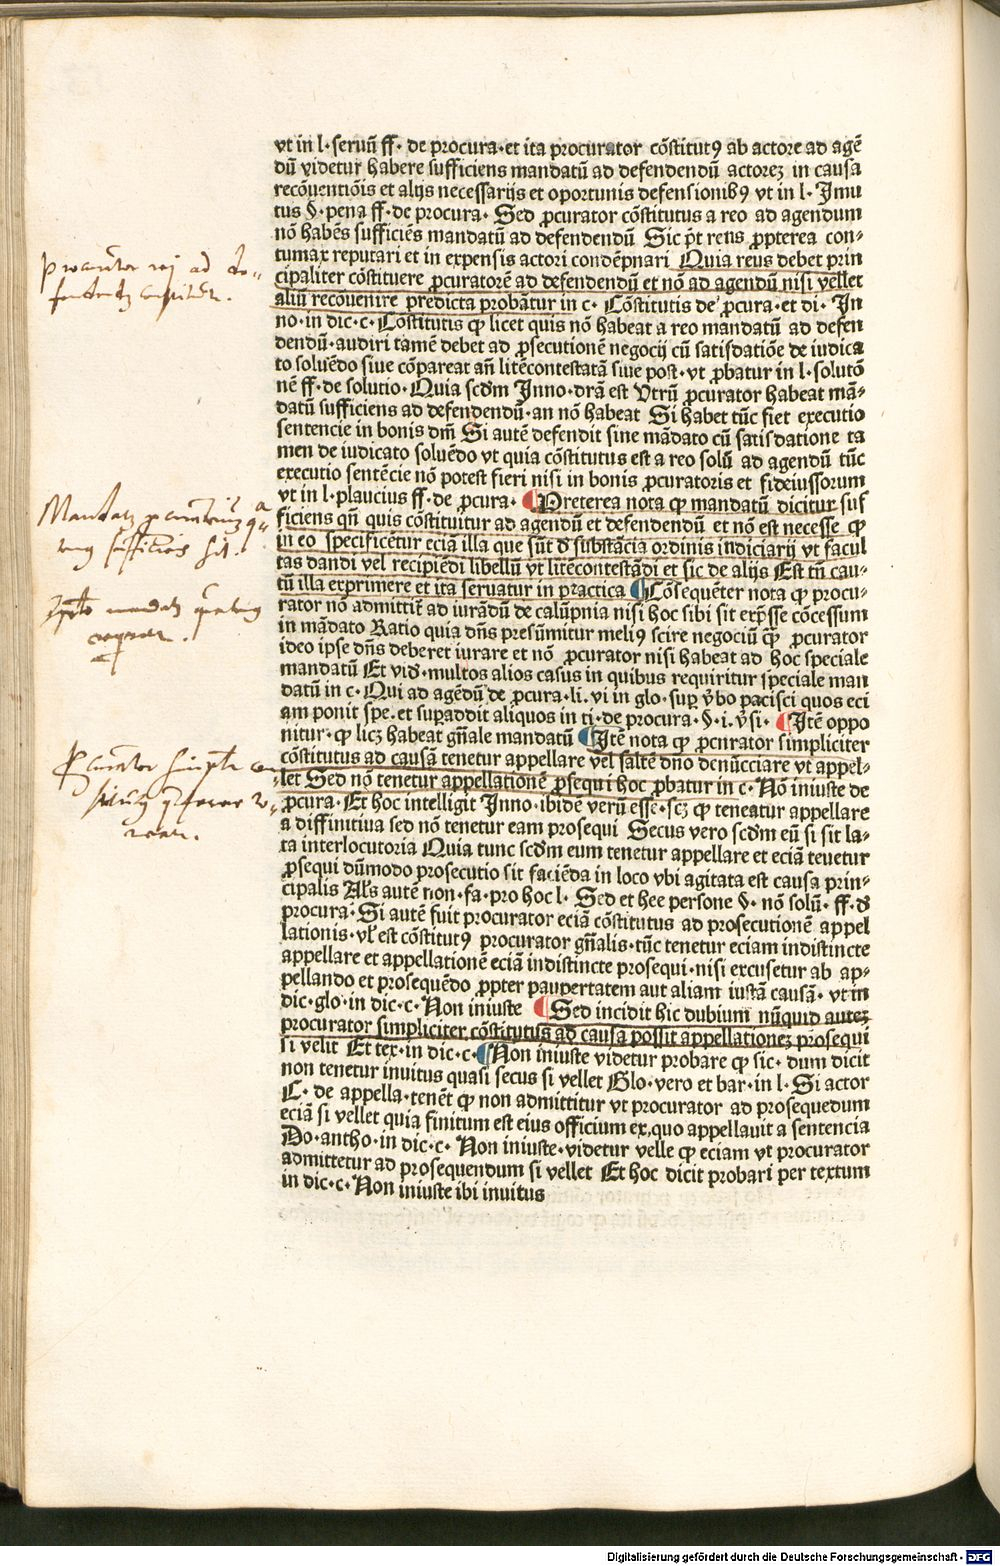 vt in l· seruū ff· de procura·et ita procurator cōstitutꝰ ab actore ad agē
dū videtur habere sufficiens mandatū ad defendendū actoreꝫ in causa
recōuentiōis et alijs necessarijs et oportunis defensionibꝰ vt in l· Imu
tus §· pena ff·de procura· Sed ꝓcurator cōstitutus a reo ad agendum
nō habēs sufficiēs mandatū ad defendendū Sic pt̄ reus ꝓpterea con⸗
tumax reputari et in expensis actori condēpnari Quia reus debet prin
cipaliter cōstituere ꝓcuratorē ad defendendū et nō ad agendū nisi vellet
aliū recōuenire predicta probātur in c· Cōstitutis de ꝓcura·et di· In
no·in dic·c·Cōstitutis ꝙ licet quis nō habeat a reo mandatū ad defen
dendū·audiri tamē debet ad ꝓsecutionē negocij cū satisdatiōe de iudica
to soluēdo siue cōpareat an̄ litēcontestatā siue post·vt ꝓbatur in l·solutō
nē ff·de solutio·Quia scdm̄ Inno·drā est Vtrū ꝓcurator habeat mā⸗
datū sufficiens ad defendendū·an nō habeat Si habet tūc fiet executio
sentencie in bonis dm̄ Si autē defendit sine mādato cū satisdatione ta
men de iudicato soluēdo vt quia cōstitutus est a reo solū ad agendū tūc
executio sentēcie nō potest fieri nisi in bonis ꝓcuratoris et fideiussorum
vt in l·plaucius ff·de ꝓcura· ¶Preterea nota ꝙ mandatū dicitur suf
ficiens qn̄ quis cōstituitur ad agendū et defendendū et nō est necesse ꝙ
in eo specificētur eciā illa que sūt d̄ substācia ordinis indiciarij vt facul
tas dandi vel recipiēdi libellū vt litēcontestādi et sic de alijs Est tn̄ cau⸗
tū illa exprimere et ita seruatur in practica ¶Cōsequēter nota ꝙ procu⸗
rator nō admittit̄ ad iurādū de calūpnia nisi hoc sibi sit exp̄sse cōcessum
in mādato Ratio quia dn̄s presūmitur meliꝰ scire negociū qꝫ̄ ꝓcurator
ideo ipse dn̄s deberet iurare et nō ꝓcurator nisi habeat ad hoc speciale
mandatū Et vid̄·multos alios casus in quibus requiritur speciale man
datū in c·Qui ad agēdū de ꝓcura·li·vi in glo·suꝑ v̄bo pacisci quos eci
am ponit spe·et suꝑaddit aliquos in ti·de procura·§·i·v̄si· ¶Itē oppo
nitur·ꝙ licꝫ habeat gn̄ale mandatū ¶Itē nota ꝙ ꝓcurator simpliciter
cōstitutus ad causā tenetur appellare vel saltē dn̄o denūcciare vt appel⸗
let Sed nō tenetur appellationē ꝓsequi hoc ꝓbatur in c·Nō iniuste de
ꝓcura·Et hoc intelligit Inno·ibidē verū esse·sꝫ ꝙ teneatur appellare
a diffinitiua sed nō tenetur eam prosequi Secus vero scdm̄ eū si sit la⸗
ta interlocutoria Quia tunc scdm̄ eum tenetur appellare et eciā teuetur
ꝓsequi dūmodo prosecutio sit faciēda in loco vbi agitata est causa prin⸗
cipalis Al̄s autē non·fa·pro hoc l· Sed et hee persone §·nō solū·ff·d̄
procura·Si autē fuit procurator eciā cōstitutus ad prosecutionē appel
lationis·vl̄ est cōstitutꝰ procurator gn̄alis·tūc tenetur eciam indistincte
appellare et appellationē eciā indistincte prosequi·nisi excusetur ab ap⸗
pellando et prosequēdo ꝓpter paupertatem aut aliam iustā causā· vt in
dic·glo·in dic·c·Non iniuste ¶Sed incidit hic dubium nūquid auteꝫ
procurator simpliciter cōstitutus ad causā possit appellationeꝫ prosequi
si velit Et tex·in dic·c·¶Non iniuste videtur probare ꝙ sic· dum dicit
non tenetur inuitus quasi secus si vellet Glo·vero et bar·in l·Si actor
C·de appella·tenēt ꝙ non admittitur vt procurator ad prosequedum
eciā si vellet quia finitum est eius officium ex quo appellauit a sentencia
Do·antho·in dic·c· Non iniuste·videtur velle ꝙ eciam vt procurator
admittetur ad prosequendum si vellet Et hoc dicit probari per textum
in dic·c·Non iniuste ibi inuitus
Digitalisierung gefördert durch die Deutsche Forschungsgemeinschaft - DFG